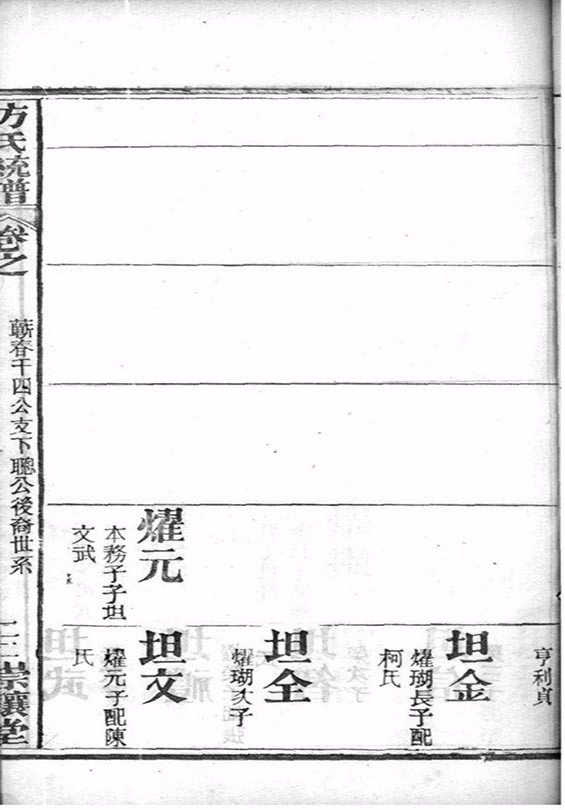 亨利貞
坦金
燿瑚長子配
柯氏
坦全
燿瑚次子
燿元
本務子子坦
文武
坦文
燿元子配陳
氏
方氏統譜
卷之
蘄春千四公支下聰公後裔世系
崇讓堂